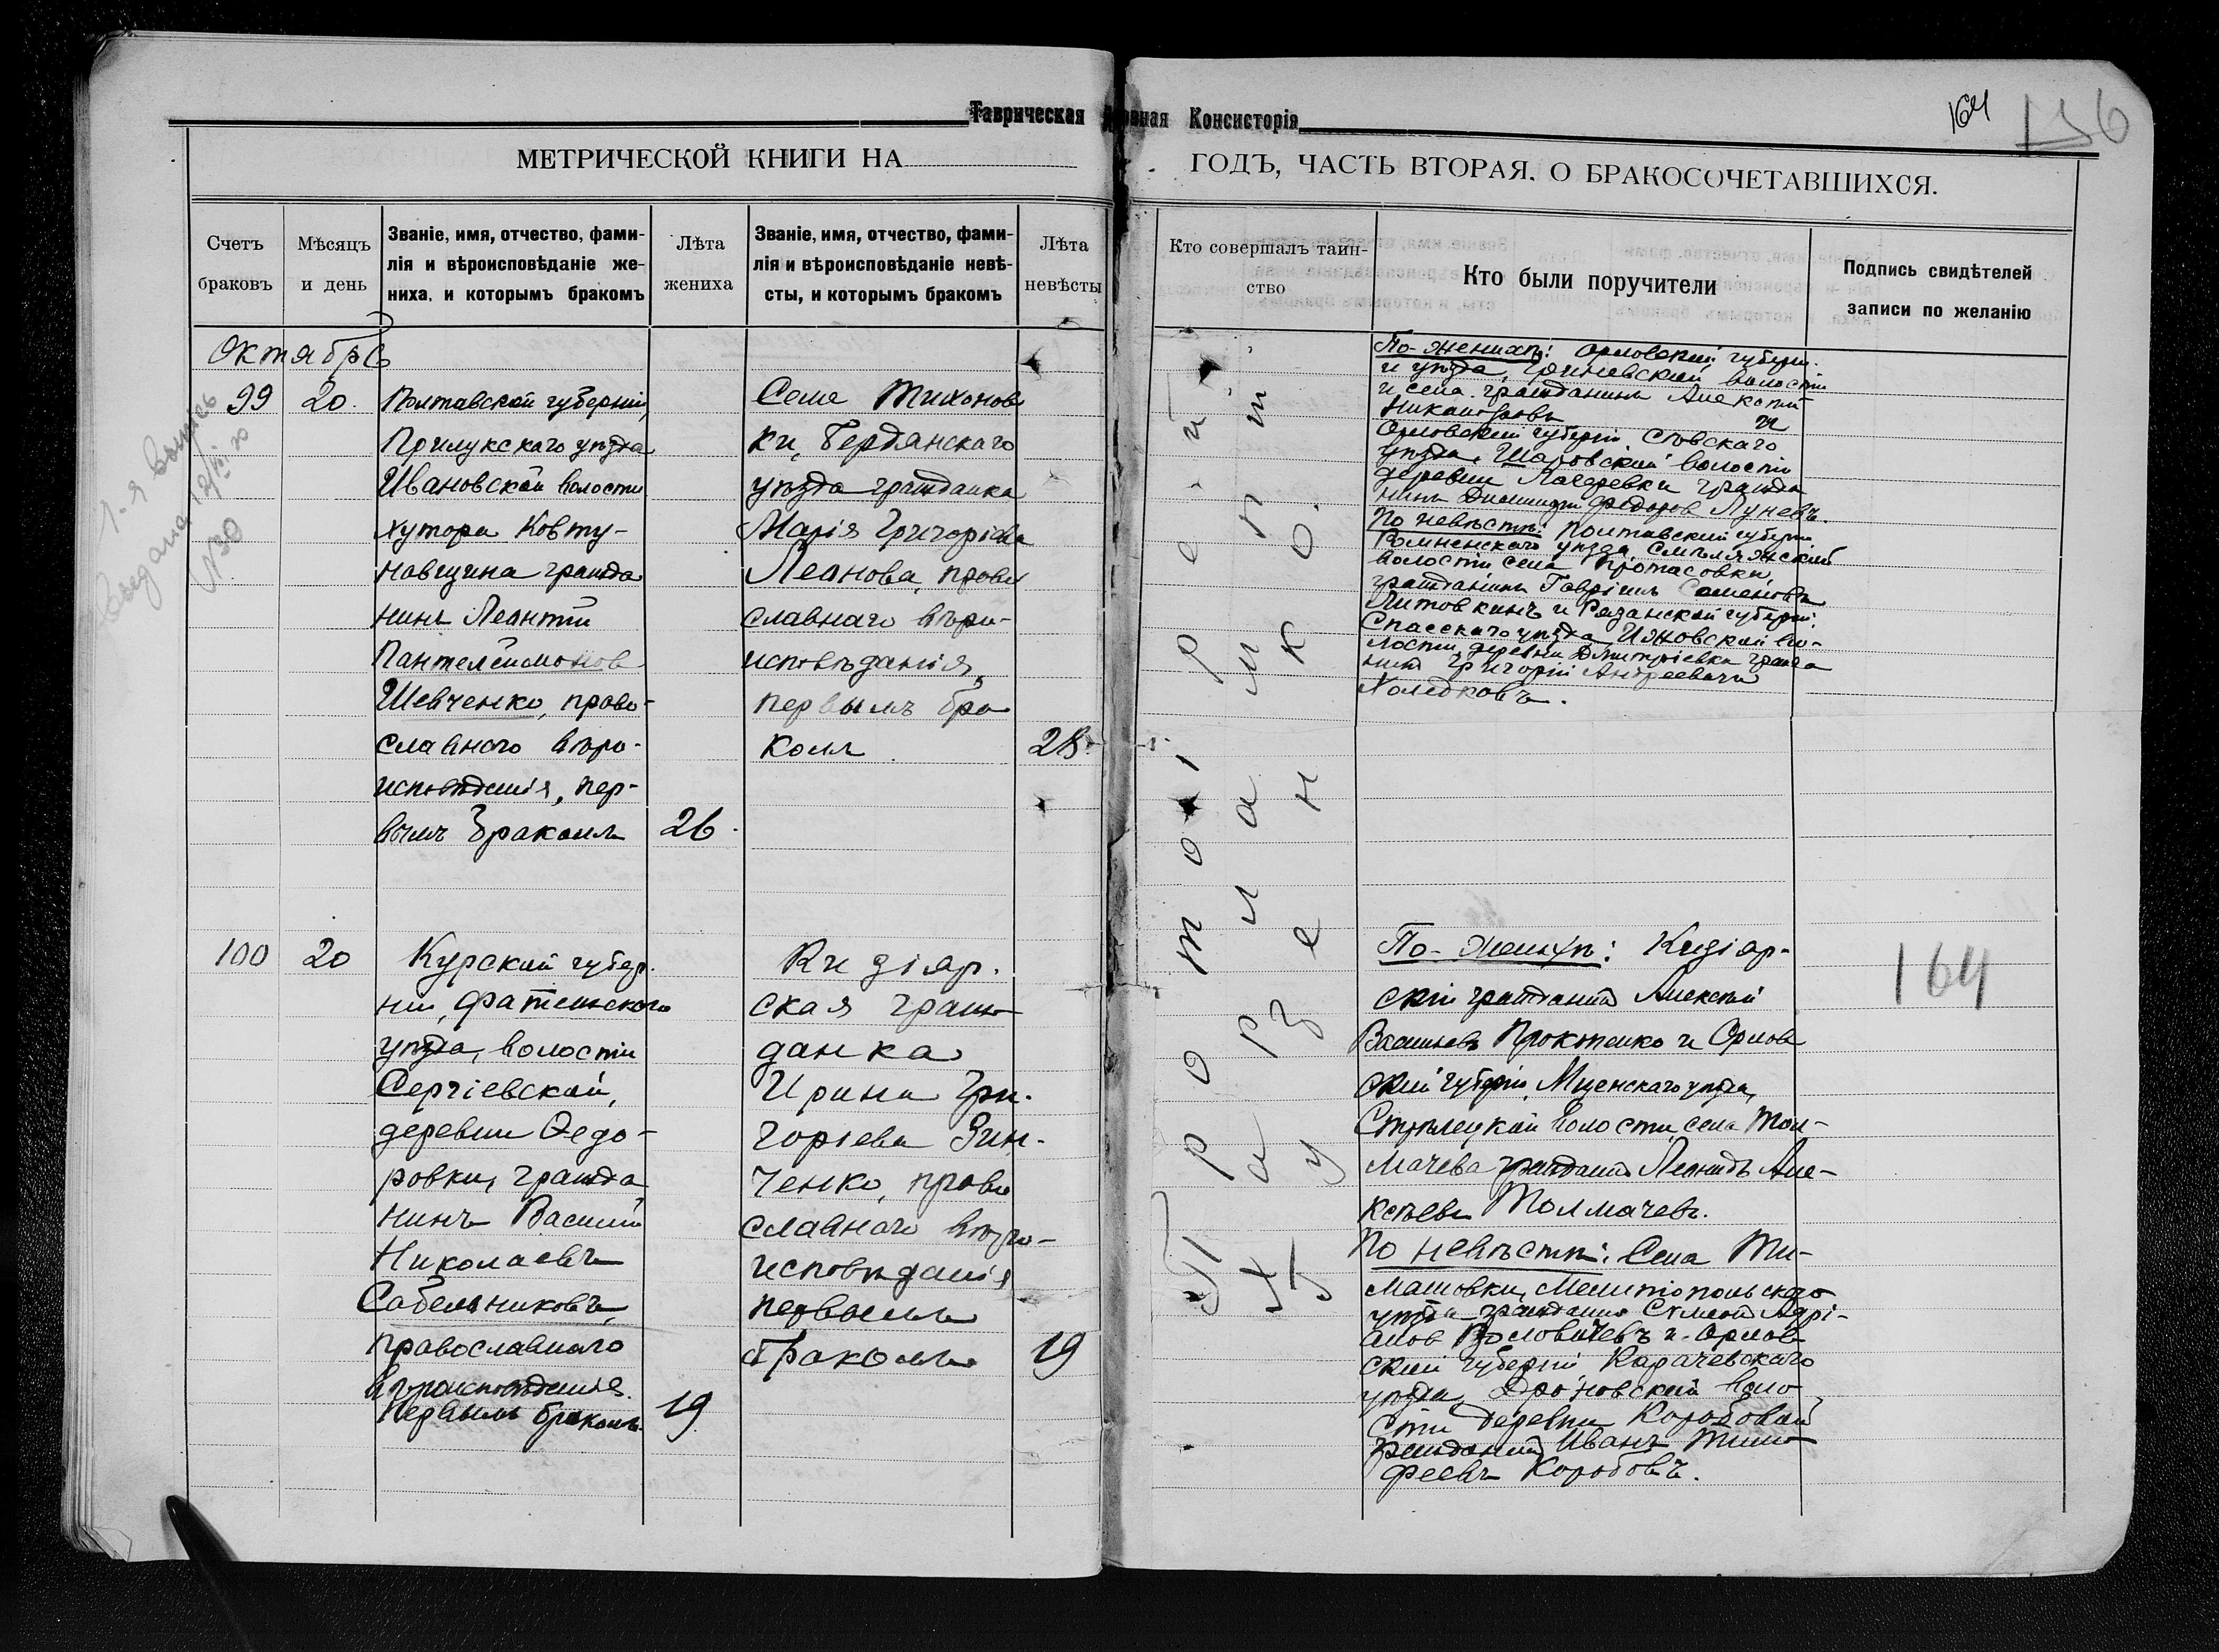 Таврическая Духовная Консисторія
164
136
МЕТРИЧЕСКОЙ КНИГИ НА
ГОДЪ, ЧАСТЬ ВТОРАЯ, О БРАКОСОЧЕТАВШИХСЯ.
Счетъ
браковъ
Мѣсяцъ
и день
Званіе, имя, отчество, фами-
лія и вѣроисповѣданіе же-
ниха, и которымъ бракомъ
Лѣта
жениха
Званіе, имя, отчество, фами-
лія и вѣроисповѣданіе невѣ-
сты, и которымъ бракомъ
Лѣта
невѣсты
Кто совершалъ таин-
ство
Кто были поручители
Подпись свидѣтелей
записи по желанію
Октябрь
1-я выпись
выдана
№30
99
20.
Полтавской губерніи,
Прилукскаго уѣзда
Ивановской волости
хутора Ковту-
новщина гражда
нинъ Леонтій
Пантелеимонов
Шевченко, право-
славнаго вѣро-
исповѣданія, пер-
вымъ бракомъ
26.
Села Тихонов
ки, Бердянскаго
уѣзда гражданка
Марія Григоріева
Леонова, право
славнаго вѣро-
исповѣданія,
первымъ бра
комъ
28.
По-женихѣ: Орловской губерн.
и уѣзда, Гриневской волости
и села гражданинъ Алексѣй
Никаноровъ и
Орловской губерніи, Сѣвскаго
уѣзда, Шаровской волости
деревни Лагеревки гражда
нинъ Димитрій Федоров Луневъ.
По невѣстѣ: Полтавской губерніи
Роменскаго уѣзда, Смѣлянской
волости села Протасовки,
гражданинъ Гавріилъ Семеновъ
Литовкинъ и Рязанской губерніи.
Спасскаго уѣзда Ижовской во-
лости, деревни Дмитріевки гражда
нинъ Григорій Андреевичъ
Холодковъ.
100
20
Курской губер.
ніи, Фатежскаго
уѣзда, волости
Сергіевской,
деревни Федо-
ровки, гражда
нинъ Василій
Николаевъ
Сабельниковъ,
православнаго
вѣроисповѣданія.
Первымъ бракомъ.
19
Кизіяр.
ская граж-
данка
Ирина Гри-
горіева Зин-
ченко, право
славнаго вѣро-
исповѣданія
первымъ
бракомъ
19
Протоіерей
Харлампій
Гузенко.
По-женихѣ: Кизіяр-
скій гражданинъ Алексѣй
Васильевъ Прокопенко и Орлов
ской губерніи, Мценскаго уѣзда,
Стрѣлецкой волости села Тол-
мачева гражданинъ Леонидъ Але-
ксѣевъ Толмачевъ.
По невѣстѣ: Села Ти-
машовки, Мелитопольскаго
уѣзда гражданинъ Симеон Адрі-
анов Воловичевъ и Орлов
ской губерніи Карачевскаго
уѣзда, Дроновской воло
сти деревни Коробовой
гражданинъ Иванъ Тимо
феевъ Коробовъ.
164